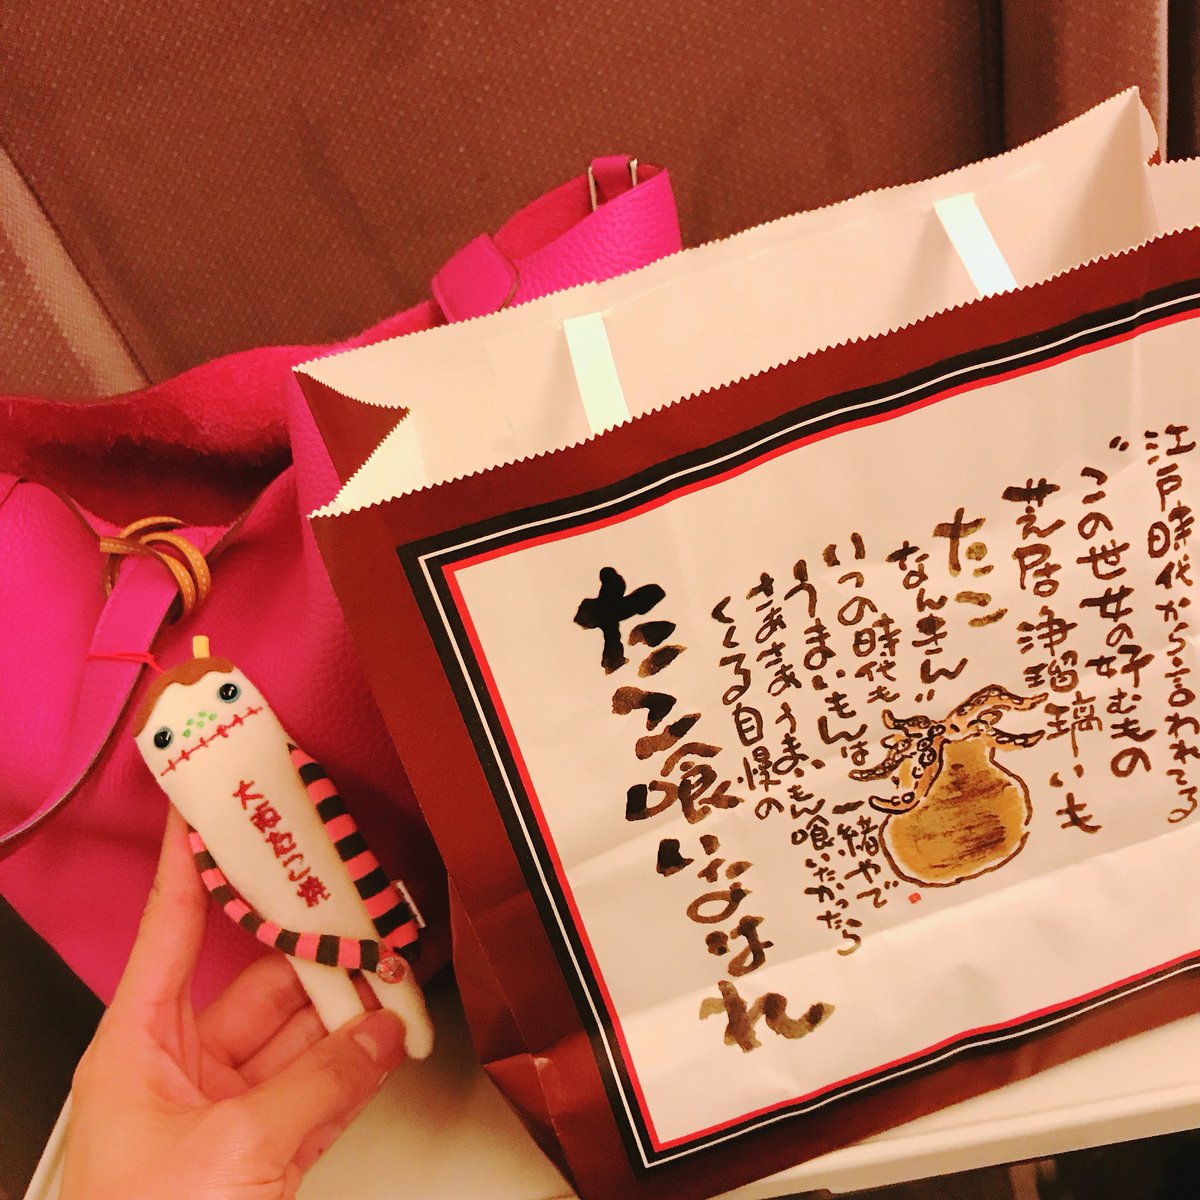 江戸時代から言われてる
"この世女の好むもの
芝居浄瑠璃いも
たこ
なんきん"
いつの時代も
うまいもんは一緒やで
さあさあうまいもん喰いたかったら
くくる自慢の
たこ喰いなはれ
たこ焼